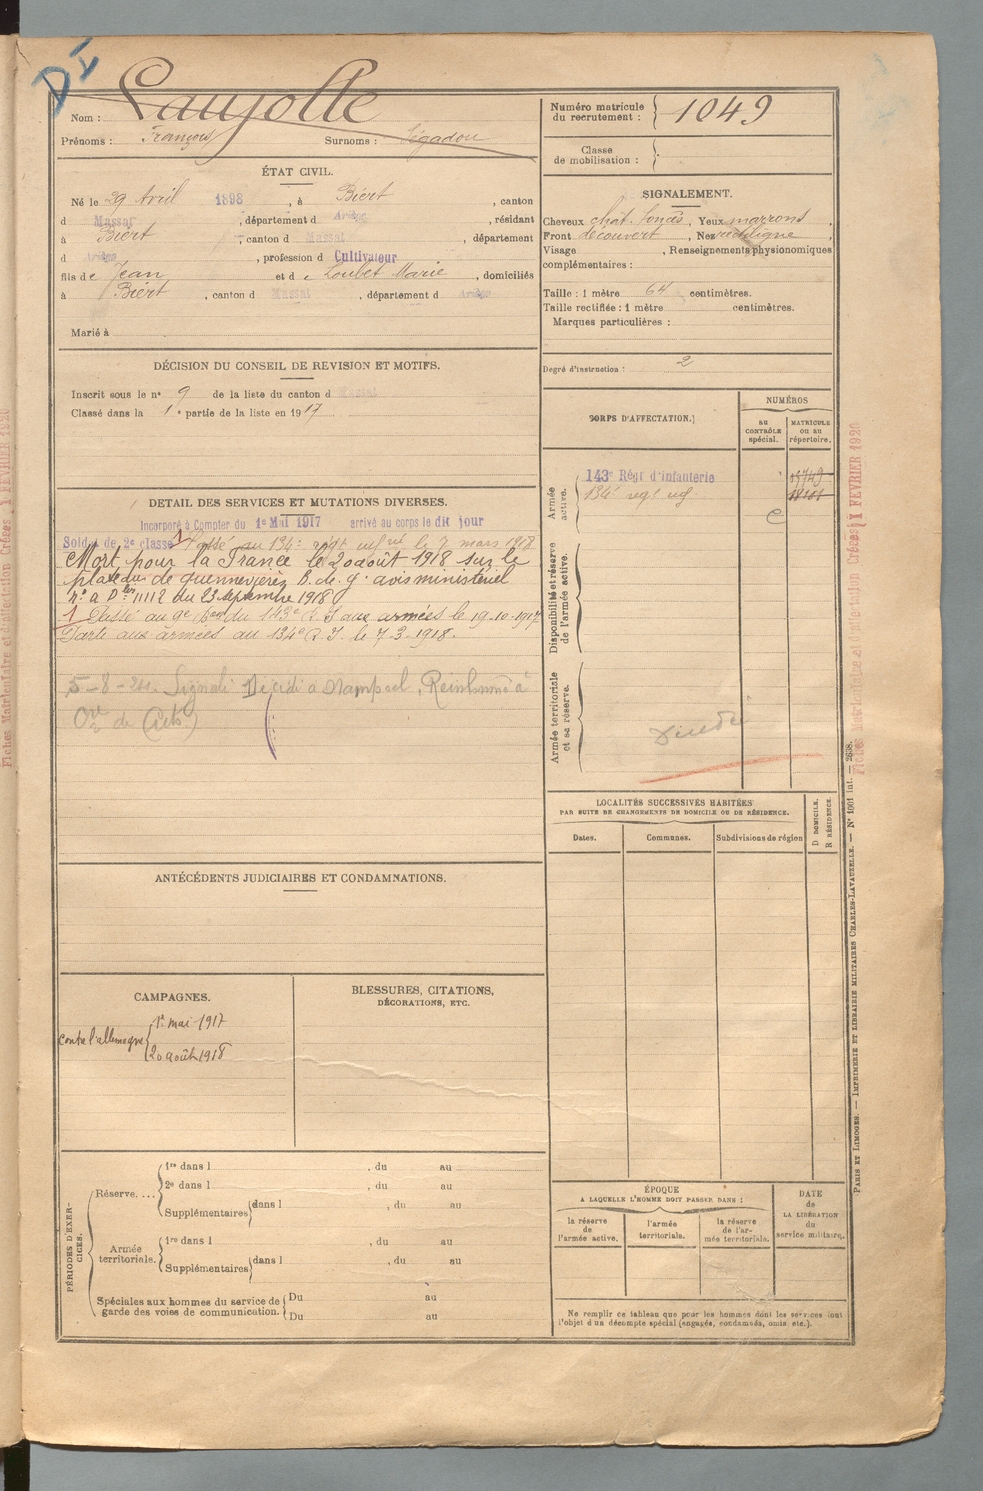 DI
Nom : Laujolle
Prénoms : François Surnoms : Ségadou
Numéro matricule du recrutement : 1049
Classe de mobilisation :
ÉTAT CIVIL.
Né le 29 Avril 1898, à Biert, canton
d Massat, département d Ariège, résidant
à Biert, canton d Massat, département
d Ariège, profession d Cultivateur
fils de Jean et de Loubet Marie, domiciliés
à Biert, canton d Massat, département d Ariège
Marié à
SIGNALEMENT.
Cheveux chat. foncés, Yeux marrons,
Front découvert, Nez rectiligne,
Visage , Renseignements physionomiques
complémentaires :
Taille : 1 mètre 64 centimètres.
Taille rectifiée : 1 mètre centimètres.
Marques particulières :
Degré d'instruction : 2
DÉCISION DU CONSEIL DE REVISION ET MOTIFS.
Inscrit sous le n° 9 de la liste du canton d Massat
Classé dans la 1e partie de la liste en 1917
CORPS D'AFFECTATION.
NUMÉROS
au CONTRÔLE spécial.
MATRICULE ou au répertoire.
Armée active.
143e Régt d'infanterie
134e regt inf
Disponibilité et réserve de l'armée active.
Armée territoriale et sa réserve.
DETAIL DES SERVICES ET MUTATIONS DIVERSES.
Incorporé à Compter du 1e Mai 1917 arrivé au corps le dit jour
Soldat de 2e classe 1 Passé au 134e regt infrie le 7 mars 1918
Mort pour la France le 20 août 1918 sur le
plateau de quennevières B. de g. avis ministériel
n° 11112 du 23 septembre 1918
1 Passé au 9e Bon du 143e R.I aux armées le 19-10-1917
Parti aux armées au 134e R.I. le 7-3-1918.
5-8- Signalé Décédé à Nampcel,
LOCALITÉS SUCCESSIVES HABITÉES
PAR SUITE DE CHANGEMENTS DE DOMICILE OU DE RÉSIDENCE.
Dates. Communes. Subdivisions de région
D DOMICILE.
R RÉSIDENCE.
ANTÉCÉDENTS JUDICIAIRES ET CONDAMNATIONS.
CAMPAGNES.
contre l'allemagne
1er mai 1917
20 août 1918
BLESSURES, CITATIONS,
DÉCORATIONS, ETC.
PÉRIODES D'EXERCICES.
Réserve. ...
1re dans l , du au
2e dans l , du au
Supplémentaires dans l , du au
Armée territoriale.
1re dans l , du au
Supplémentaires dans l , du au
Spéciales aux hommes du service de garde des voies de communication.
Du au
Du au
ÉPOQUE
A LAQUELLE L'HOMME DOIT PASSER DANS :
la réserve de l'armée active.
l'armée territoriale.
la réserve de l'armée territoriale.
DATE de LA LIBÉRATION du service militaire.
Ne remplir ce tableau que pour les hommes dont les services font
l'objet d'un décompte spécial (engagés, condamnés, omis, etc.).
PARIS ET LIMOGES. — IMPRIMERIE ET LIBRAIRIE MILITAIRES CHARLES-LAVAUZELLE. — N° 1001 int. — 2638.
Fiches Matriculaire et d'affectation Créées 1 FEVRIER 1920
Fiches Matriculaire et d'affectation Créées 1 FEVRIER 1920